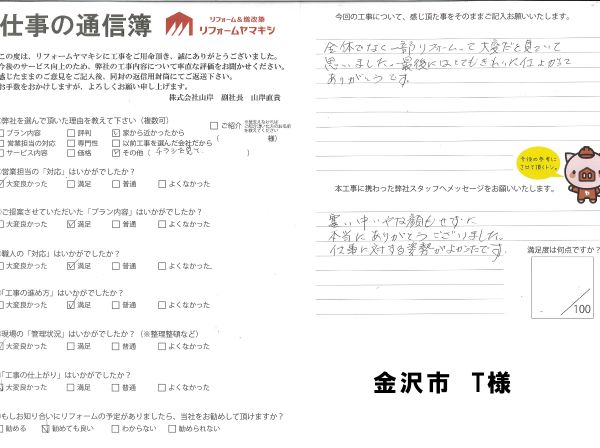 仕事の通信簿
リフォーム&増改築
リフォームヤマキシ
この度は、リフォームヤマキシに工事をご用命頂き、誠にありがとうございました。
今後のサービス向上のため、弊社の工事内容について率直な評価をお聞かせください。
感じたままのご意見をご記入後、同封の返信用封筒にてご返送下さい。
お手数をおかけしますが、よろしくお願い申し上げます。
株式会社山岸 副社長 山岸直貴
弊社を選んで頂いた理由を教えて下さい(複数可)
プラン内容 評判 家から近かったから
営業担当の対応 専門性 以前工事を選んだ会社だから
サービス内容 価格 その他(チラシを見て)
ご紹介
( 様)
営業担当の「対応」はいかがでしたか?
大変良かった 満足 普通 よくなかった
ご提案させていただいた「プラン内容」はいかがでしたか?
大変良かった 満足 普通 よくなかった
職人の「対応」はいかがでしたか?
大変良かった 満足 普通 よくなかった
「工事の進め方」はいかがでしたか?
大変良かった 満足 普通 よくなかった
現場の「管理状況」はいかがでしたか?(※整理整頓など)
大変良かった 満足 普通 よくなかった
「工事の仕上がり」はいかがでしたか?
大変良かった 満足 普通 よくなかった
もしお知り合いにリフォームの予定がありましたら、当社をお勧めして頂けますか?
勧める 勧めても良い わからない 勧められない
今回の工事について、感じ頂た事をそのままご記入お願いいたします。
全体でなく一部リフォームって大変だと見ていて
思いました。最後にはとてもきれいな仕上がりで
ありがとうです。
今後の参考に
させて頂くトン。
本工事に携わった弊社スタッフへメッセージをお願いいたします。
暑い中いやな顔もせずに
本当にありがとうございました。
仕事に対する姿勢がよかったです。
満足度は何点ですか?
/100
金沢市 T様